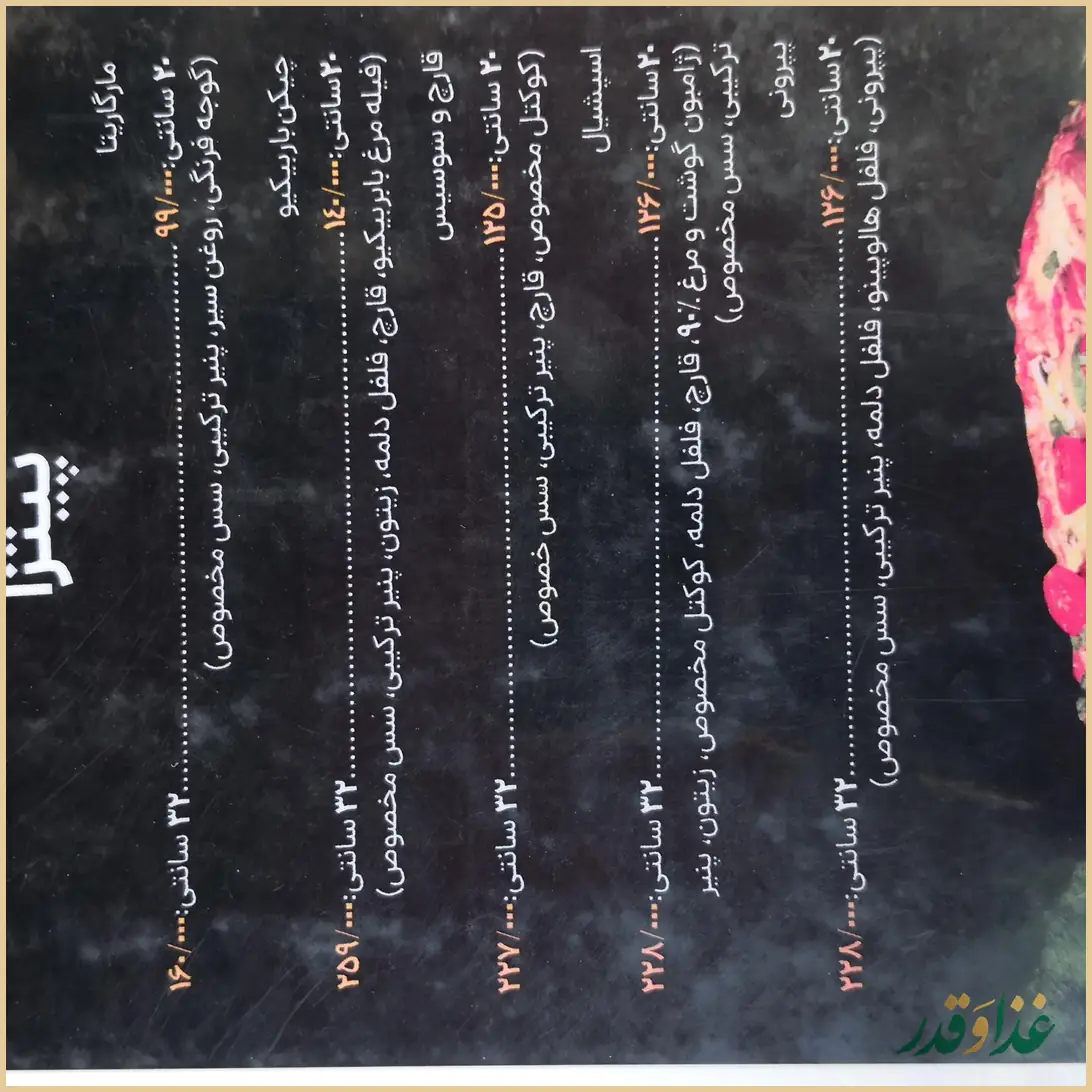 پیتزا
مارگاریتا
۲۰ سانتی: ۹۹/۰۰۰ ........ ۳۲ سانتی: ۱۶۰/۰۰۰
(گوجه فرنگی، روغن سیر، پنیر ترکیبی، سس مخصوص)
چیکن باربیکیو
۲۰ سانتی: ۱٤۰/۰۰۰ ........ ۳۲ سانتی: ۲۵۹/۰۰۰
(فیله مرغ باربیکیو، قارچ، فلفل دلمه، زیتون، پنیر ترکیبی، سس مخصوص)
قارچ و سوسیس
۲۰ سانتی: ۱۲۵/۰۰۰ ........ ۳۲ سانتی: ۲۲۷/۰۰۰
(کوکتل مخصوص، قارچ، پنیر ترکیبی، سس خصوص)
اسپشیال
۲۰ سانتی: ۱۲۶/۰۰۰ ........ ۳۲ سانتی: ۲۲۸/۰۰۰
(ژامبون گوشت و مرغ ۹۰٪، قارچ، فلفل دلمه، کوکتل مخصوص، زیتون، پنیر
ترکیبی، سس مخصوص)
پپرونی
۲۰ سانتی: ۱۲۶/۰۰۰ ........ ۳۲ سانتی: ۲۲۸/۰۰۰
(پپرونی، فلفل هالوپینو، فلفل دلمه، پنیر ترکیبی، سس مخصوص)
غذا و قدر